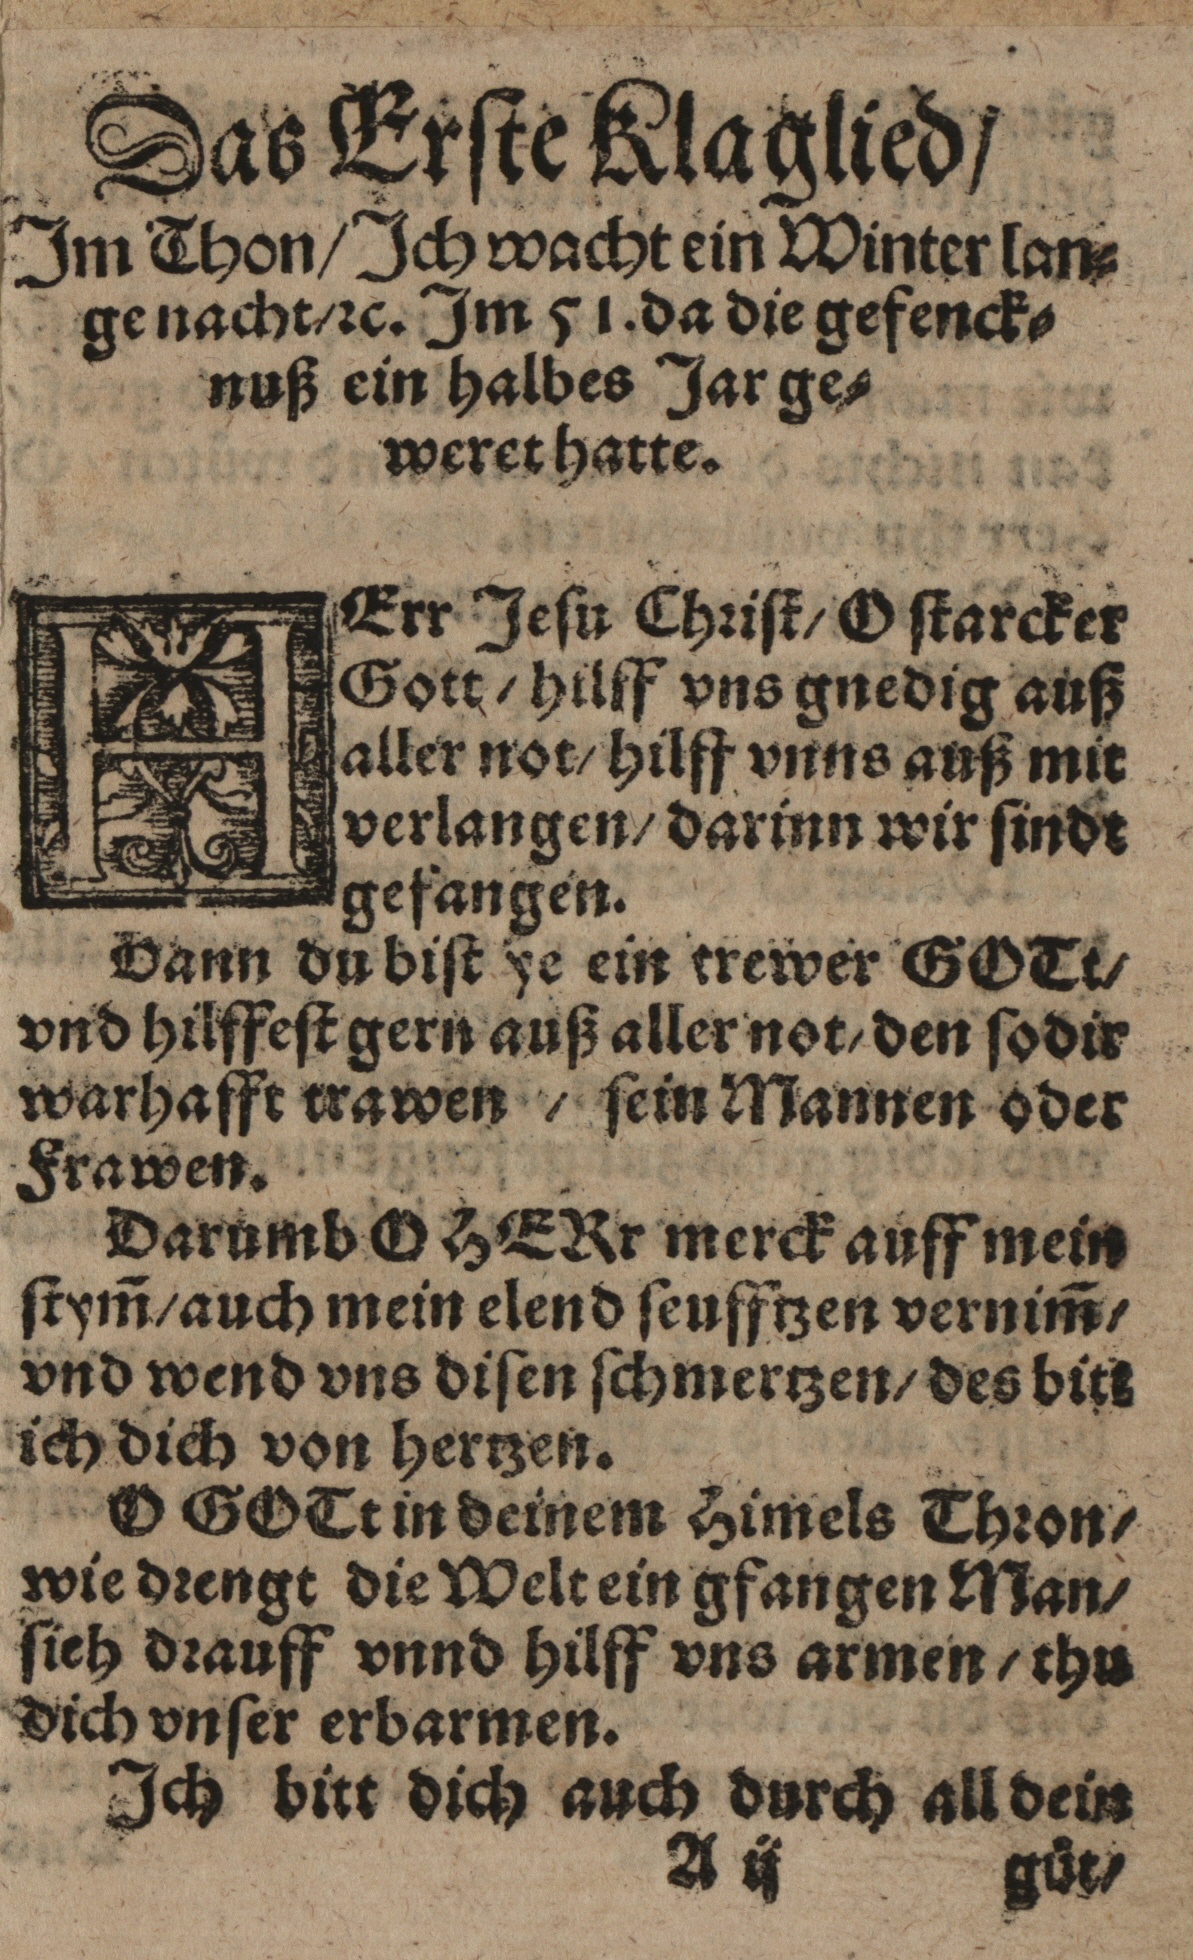 Das Erste Klaglied/
Im Thon/ Ich wacht ein Winter lan⸗
ge nacht/ꝛc. Im 51. da die gefenck⸗
nuß ein halbes Jar ge⸗
weret hatte.
HErr Jesu Christ/ O starcker
Gott/ hilff vns gnedig auß
aller not/ hilff vnns auß mit
verlangen/ darinn wir sindt
gefangen.
Dann du bist ye ein trewer GOTt/
vnd hilffest gern auß aller not/ den so dir
warhafft trawen / sein Mannen oder
Frawen.
Darumb O HERr merck auff mein
stym̄/ auch mein elend seufftzen vernim̄/
vnd wend vns disen schmertzen/ des bitt
ich dich von hertzen.
O GOTt in deinem Himels Thron/
wie drengt die Welt ein gfangen Man/
sieh drauff vnnd hilff vns armen / thu
dich vnser erbarmen.
Ich bitt dich auch durch all dein
A ij güt/